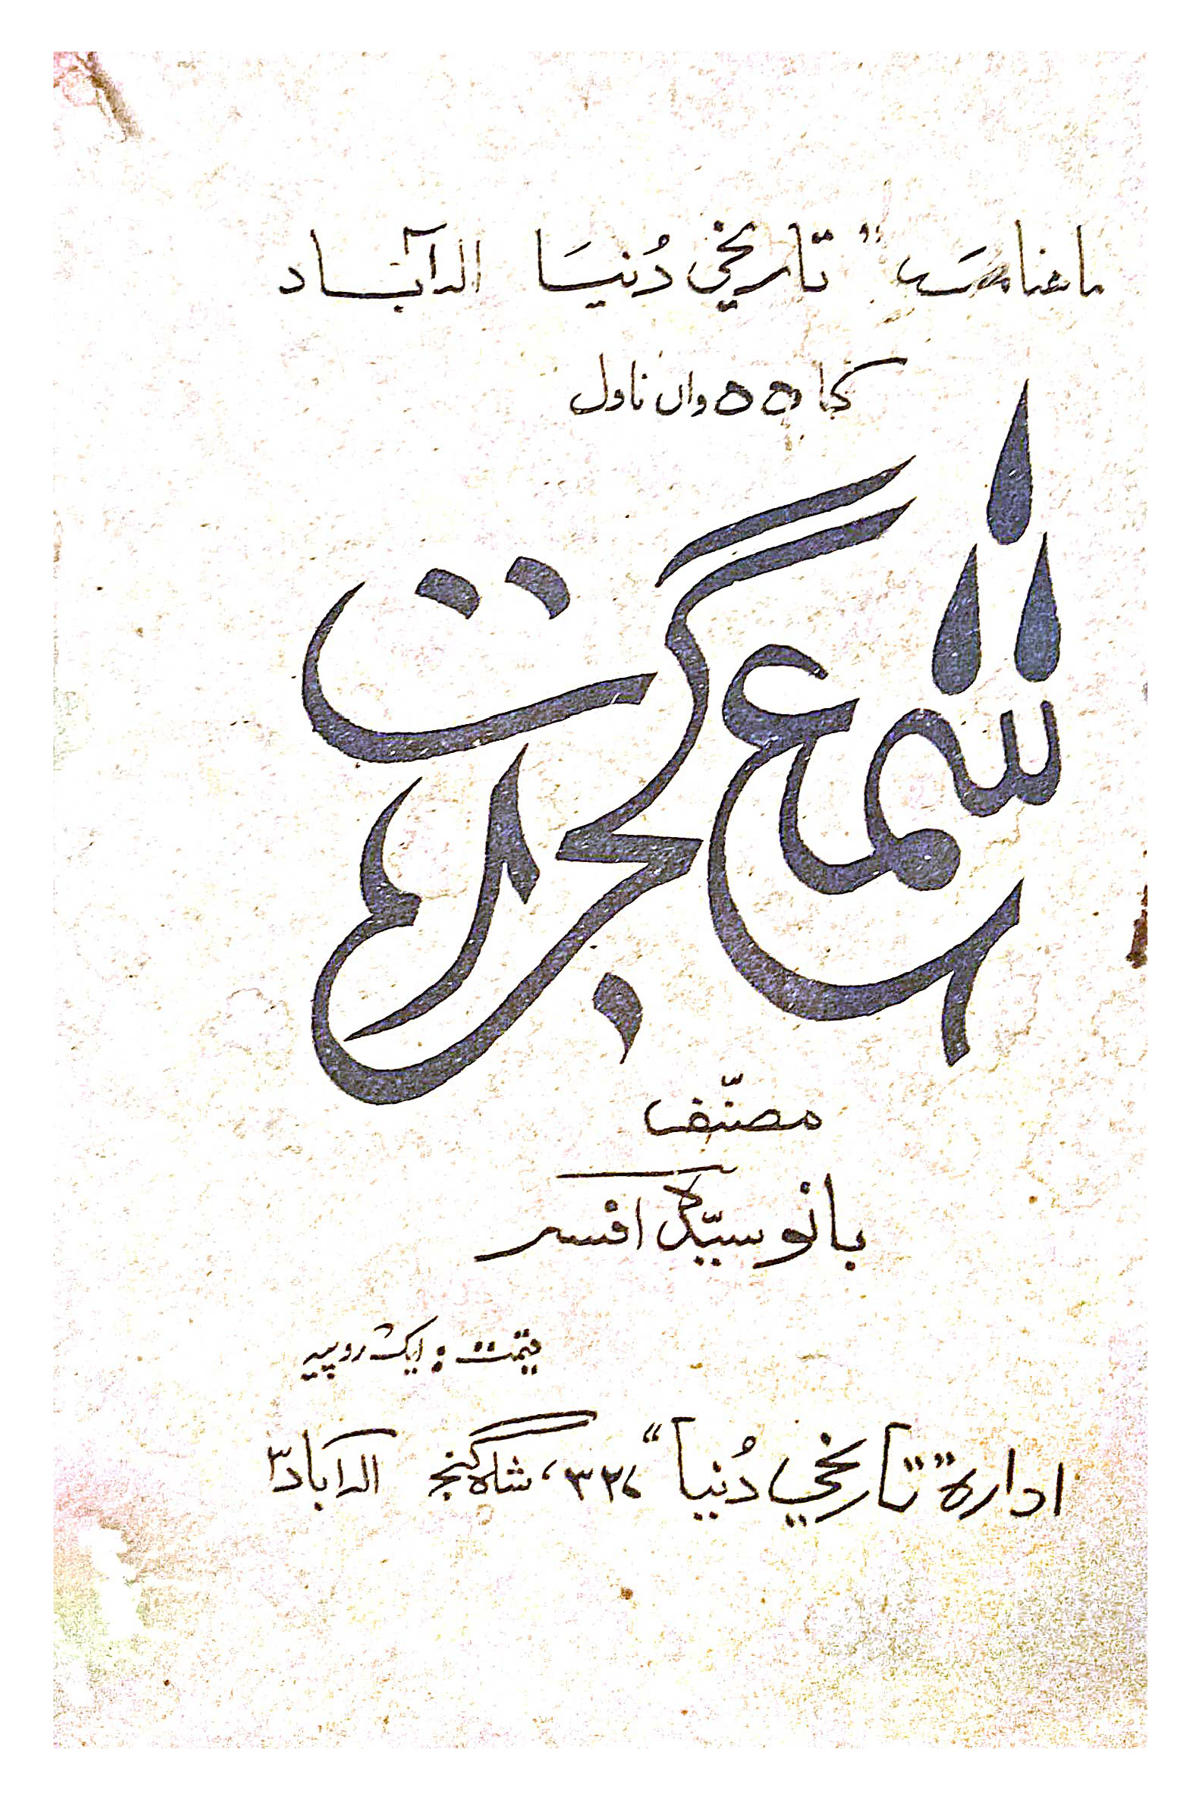 ماہنامہ "تاریخی دُنیا الہ آباد
کا ۵۵ واں ناول
شمع گجرات
مصنّف
بانو سیّدہ افسر
قیمت: ایک روپیہ
ادارہ "تاریخی دُنیا" ۳۲۶، شاہ گنج الہ آباد ۳